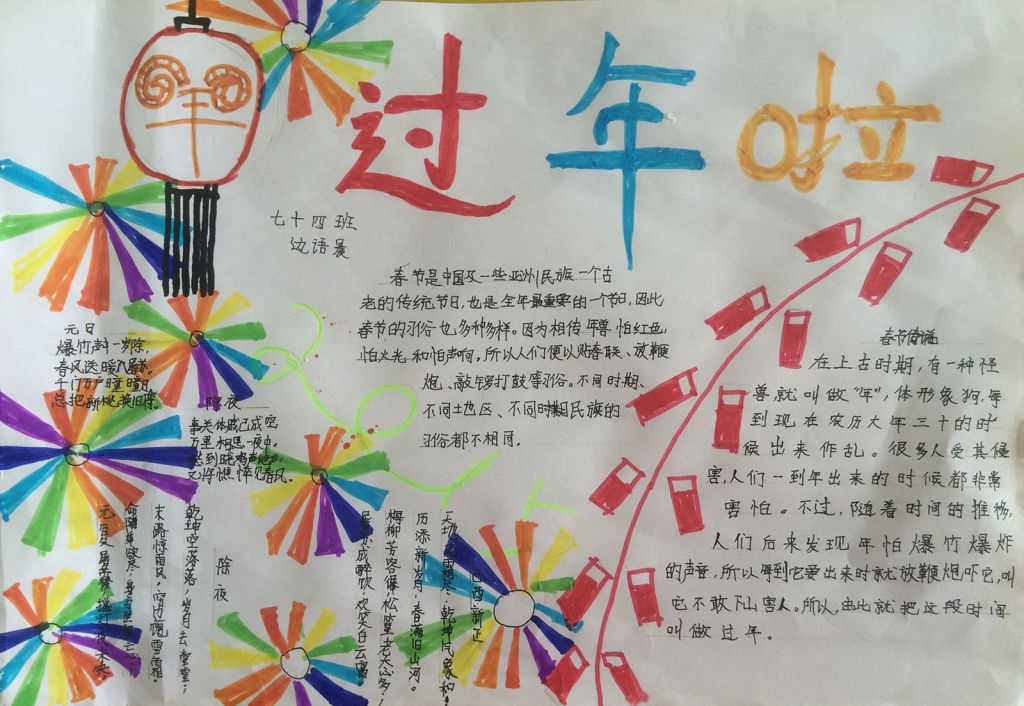 过年啦
羊
七十四班
边语晨
春节是中国及一些亚洲民族一个古
老的传统节日,也是全年最重要的一个节日,因此
春节的习俗也多种多样。因为相传年兽怕红色
怕火光和怕声响,所以人们便以贴春联、放鞭
炮、敲锣打鼓等习俗。不同时期、
不同土地区、不同时期民族的
习俗都不相同。
元日
爆竹声中一岁除,
春风送暖入屠苏。
千门万户曈曈日
总把新桃换旧符。
除夜
事关休戚已成空
万里相思一夜中。
愁到晓鸡声绝后
又将憔悴见春风。
春节传说
在上古时期,有一种怪
兽就叫做“年”,体形象狗,每
到现在农历大年三十的时
候出来作乱。很多人受其侵
害,人们一到年出来的时候都非常
害怕。不过,随着时间的推移,
人们后来发现年怕爆竹爆炸
的声音,所以每到它要出来时就放鞭炮吓它,叫
它不敢下山害人。所以,由此就把这段时间
叫做过年。
除夜
乾坤空落落,岁月去堂堂;
末路惊风雨,穷边饱雪霜。
命随年欲尽,身与世俱忘;
无复屠苏梦,挑灯夜未央。
己酉新正
天地风霜尽,乾坤气象和;
历添新岁月,春满旧山河。
梅柳芳容徲,松篁老态多;
屠苏成醉饮,欢笑白云窝。